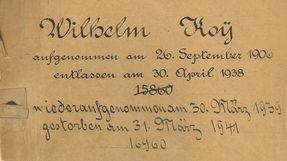 Wilhelm Koÿ
aufgenommen am 26. September 1906
entlassen am 30. April 1938
15860
wiederaufgenommen am 30. März 1939
gestorben am 31. März 1941
16960